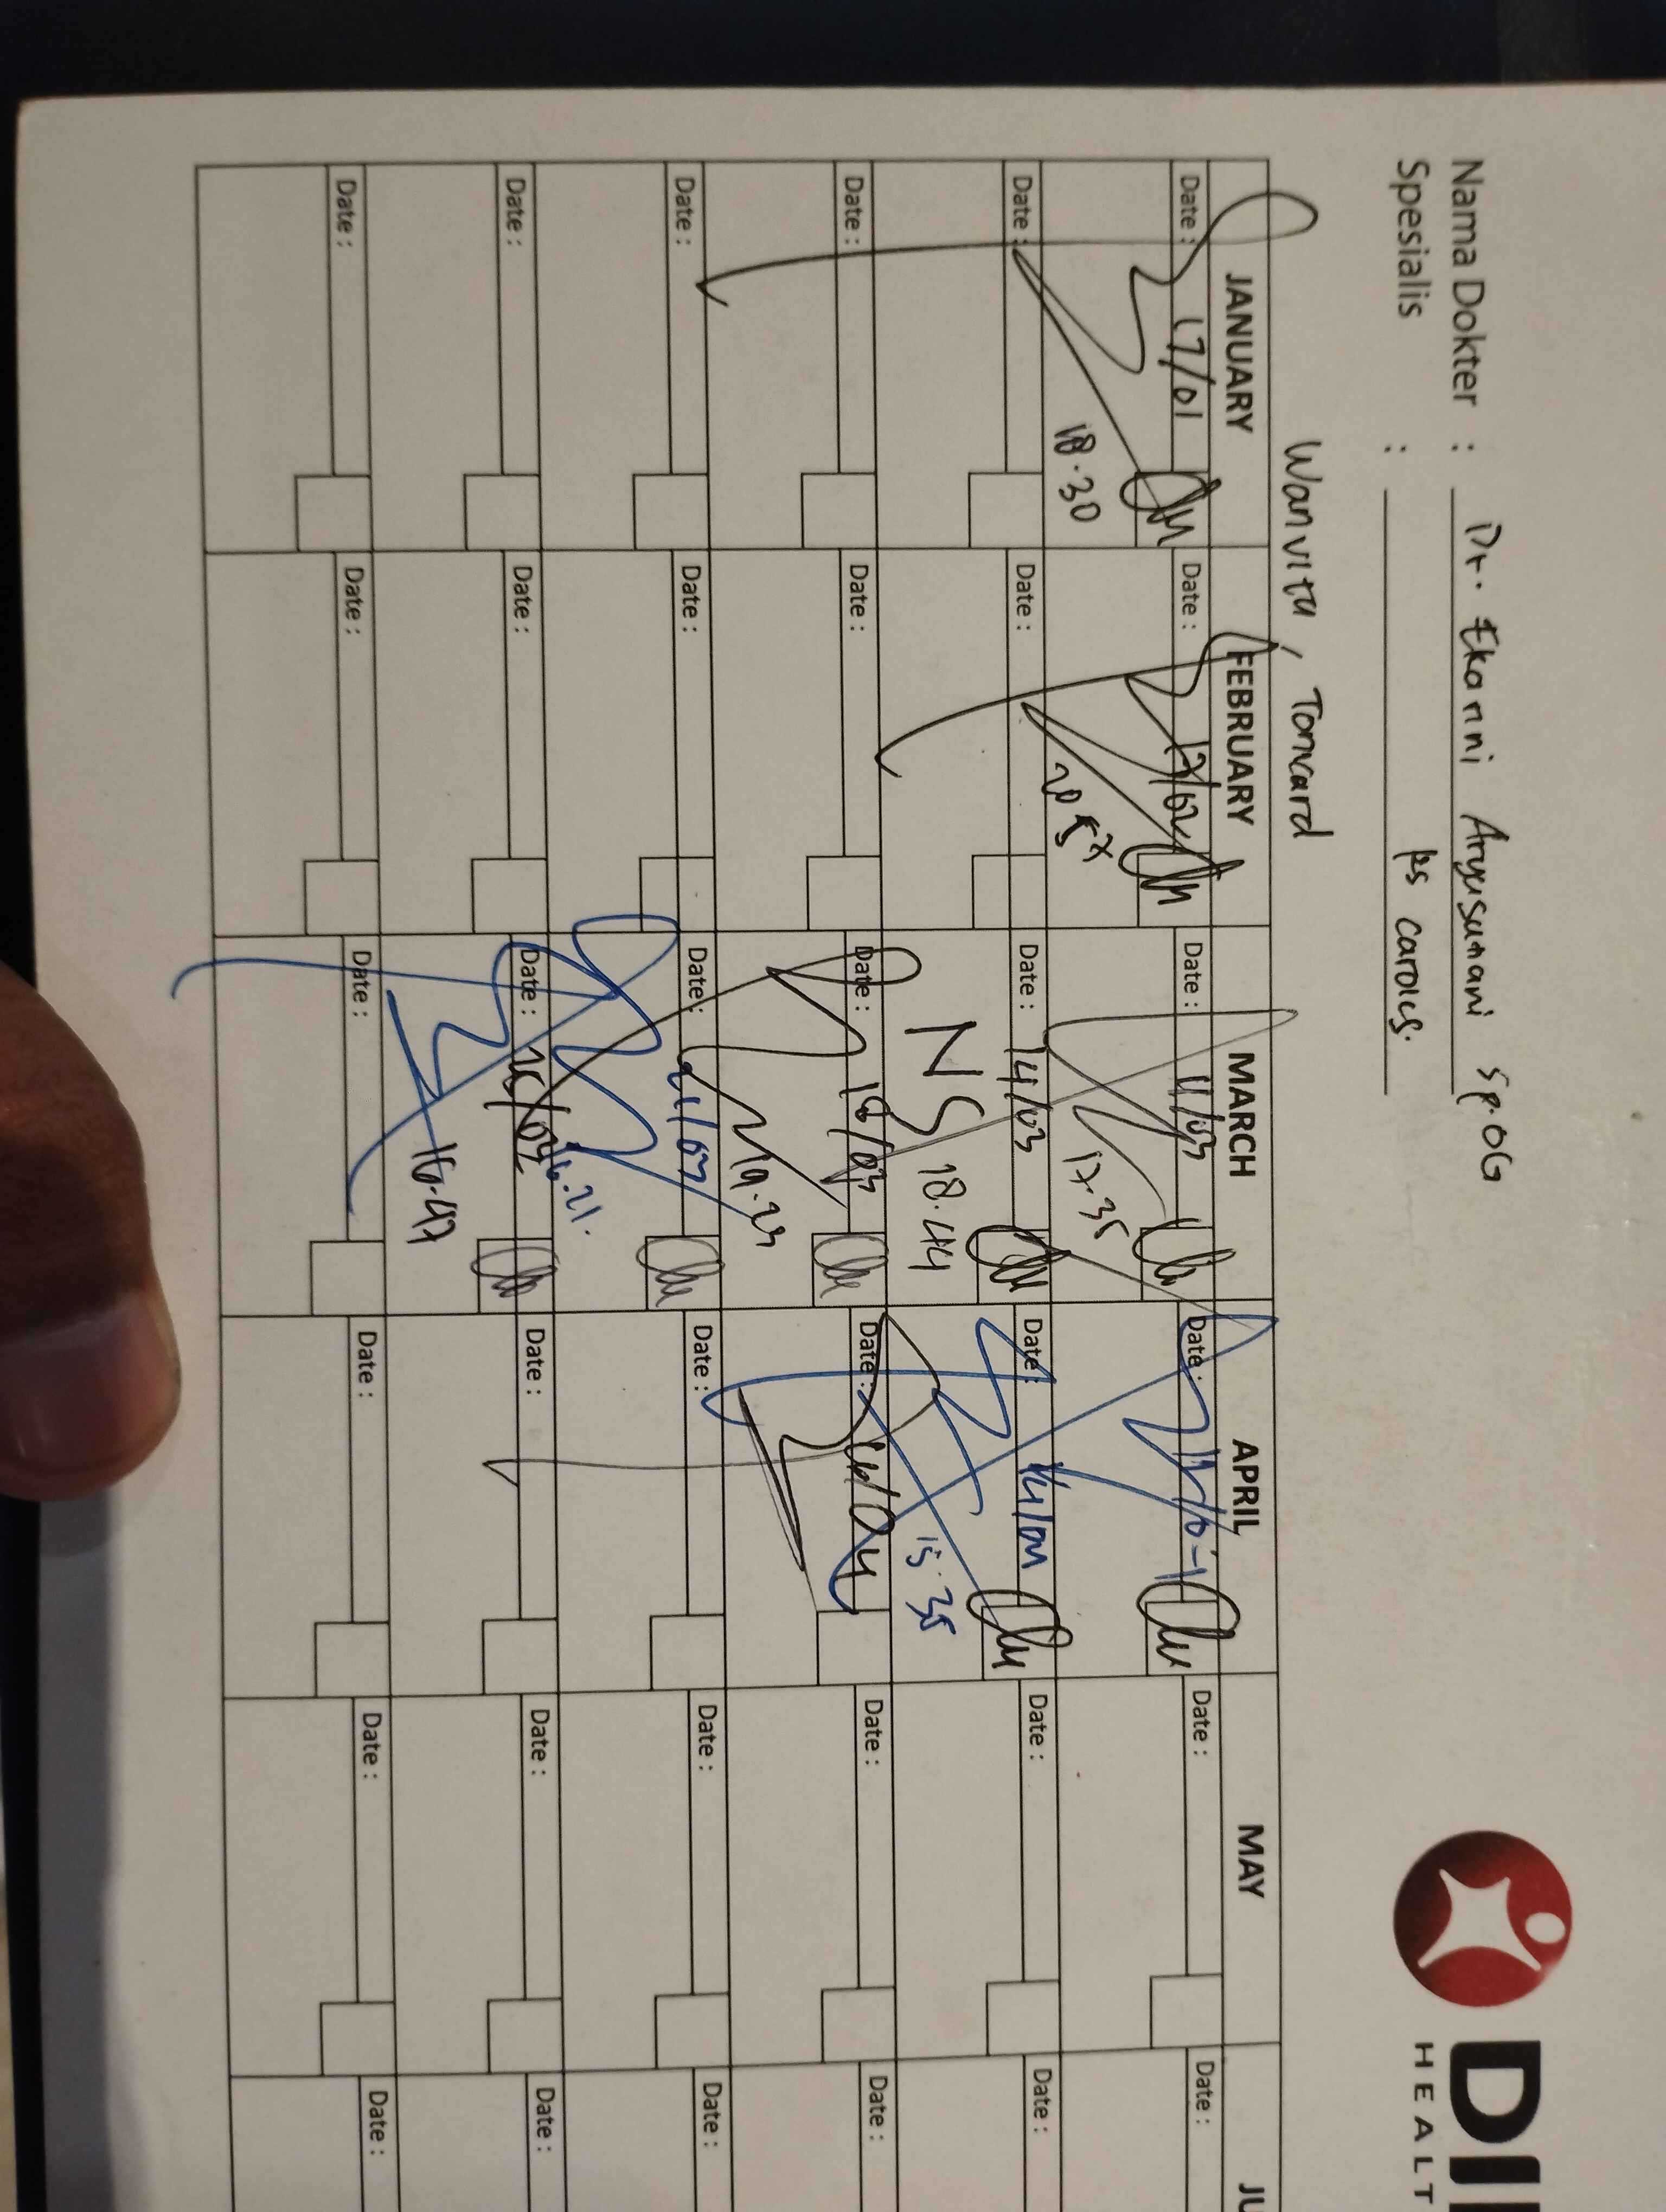 Nama Dokter : Dr. Ekanni Aryusunani Sp.OG
Spesialis : ps carolus.
DI
HEALT
Wanvita, Tomcard
JANUARY FEBRUARY MARCH APRIL MAY JU
Date : 17/01 Date : 17/02 Date : 11/03 Date : Date : Date :
18.30 20.57 17.35
Date : Date : Date : 14/03 Date : 14/04 Date : Date :
NS 18.44 15.35
Date : Date : Date : 18/03 Date : Date : Date :
19.23
Date : Date : Date : 21/03 Date : Date : Date :
16.21.
Date : Date : Date : Date : Date : Date :
16.47
Date : Date : Date : Date : Date : Date :